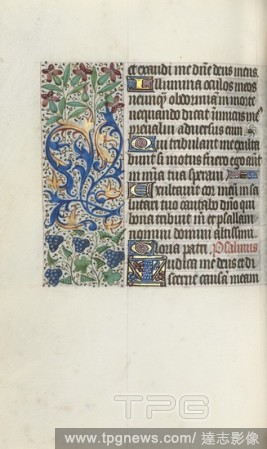 et exaudi me dñe deus meus.
Illumina oculos meos
ne unqͣ obdormiã in morte
nequando dicat inimicus me⁹
prevalui adversus eum
Qui tribulant me exulta
bunt si motus fuero ego aut̃
in mĩa tua speravi
Exultavit cor meũ in sa
lutari tuo cantabo dño qui
bona tribuit m̃ et psallam
nomini domini altissimi
Gloria patri Psalmus
Iudica me deus et di
scerne causam meam
TPG
www.tpgnews.com / 達志影像